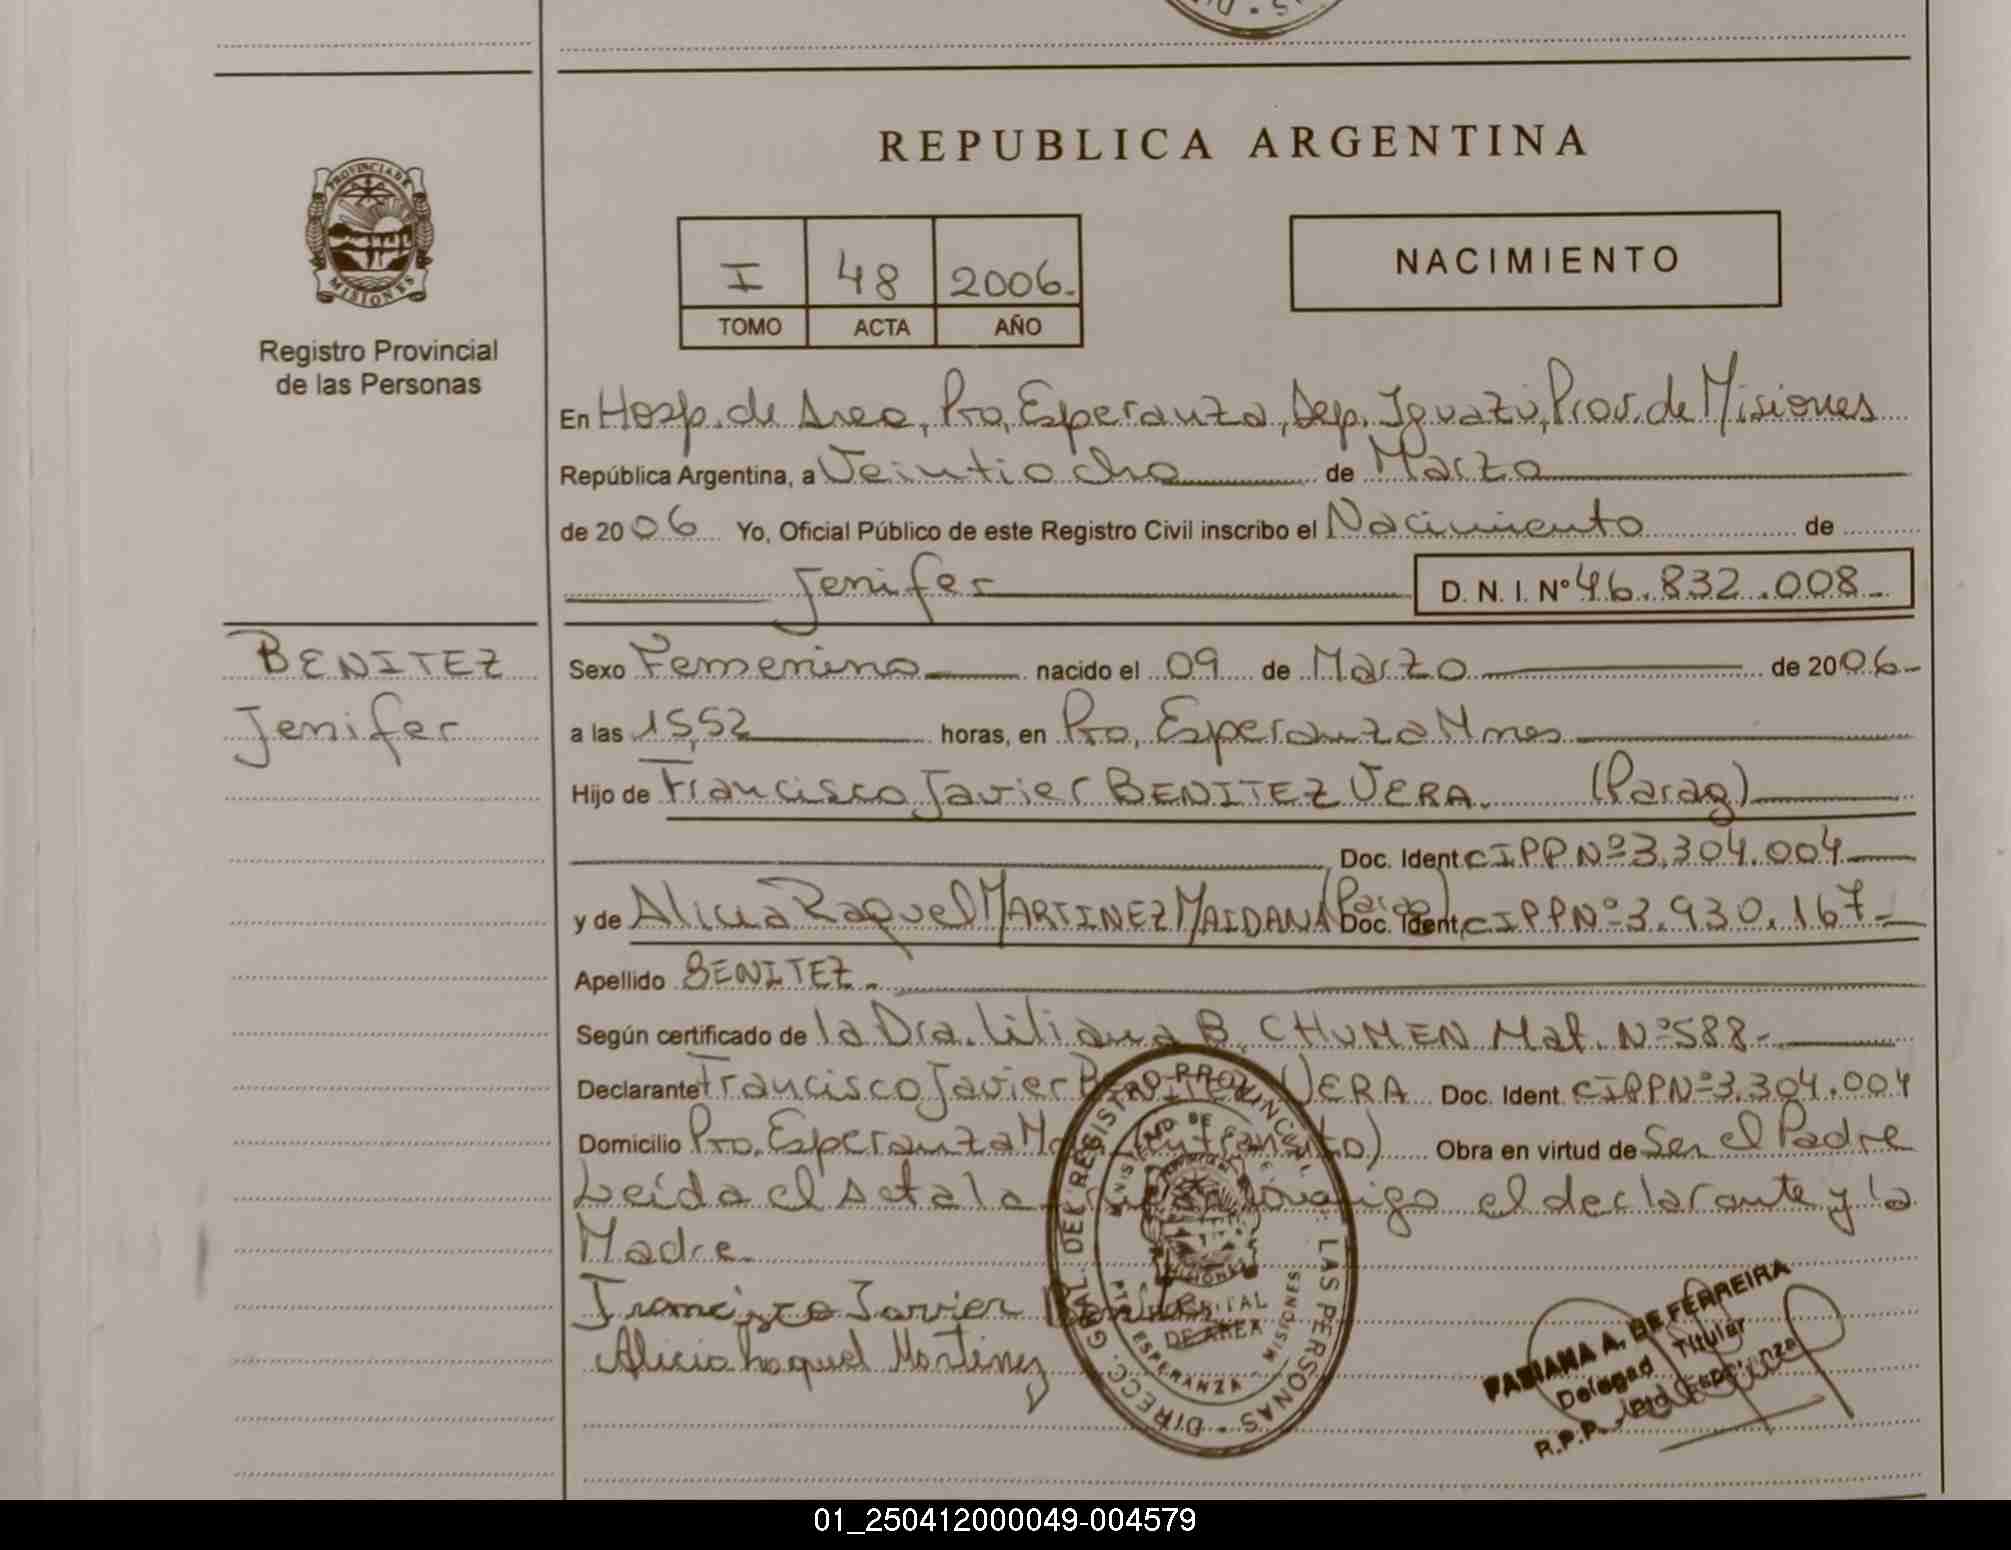 REPUBLICA ARGENTINA
PROVINCIA DE
MISIONES
Registro Provincial
de las Personas
I 48 2006.
TOMO ACTA AÑO
NACIMIENTO
En Hosp. de Area, Pto, Esperanza, Dep. Iguazú, Prov. de Misiones
República Argentina, a Veintiocho de Marzo
de 2006 Yo, Oficial Público de este Registro Civil inscribo el Nacimiento de
Jenifer D. N. I. Nº 46.832.008-
BENITEZ
Jenifer
Sexo Femenino nacido el 09 de Marzo de 2006-
a las 15,52 horas, en Pto, Esperanza Mnes
Hijo de Francisco Javier BENITEZ VERA. (Parag)
Doc. Ident CIPP Nº 3.304.004
y de Alicia Raquel MARTINEZ MAIDANA (Parag) Doc. Ident CIPP Nº 3.930.167-
Apellido BENITEZ.
Según certificado de la Dra. Liliana B. CHUMEN Mat. Nº 588-
Declarante Francisco Javier BENITEZ VERA Doc. Ident CIPP Nº 3.304.004
Domicilio Pto. Esperanza Obra en virtud de Ser el Padre
Leída el Acta la conmigo el declarante y la
Madre
Francisco Javier Benitez
Alicia Raquel Martinez
DIRECC. GRAL. DEL REGISTRO PROVINCIAL DE LAS PERSONAS
MISIONES
HOSPITAL
DE AREA
ESPERANZA - MISIONES
FABIANA A. DE FERREIRA
Delegad Titular
R.P.P. Pto Esperanza
01_250412000049-004579